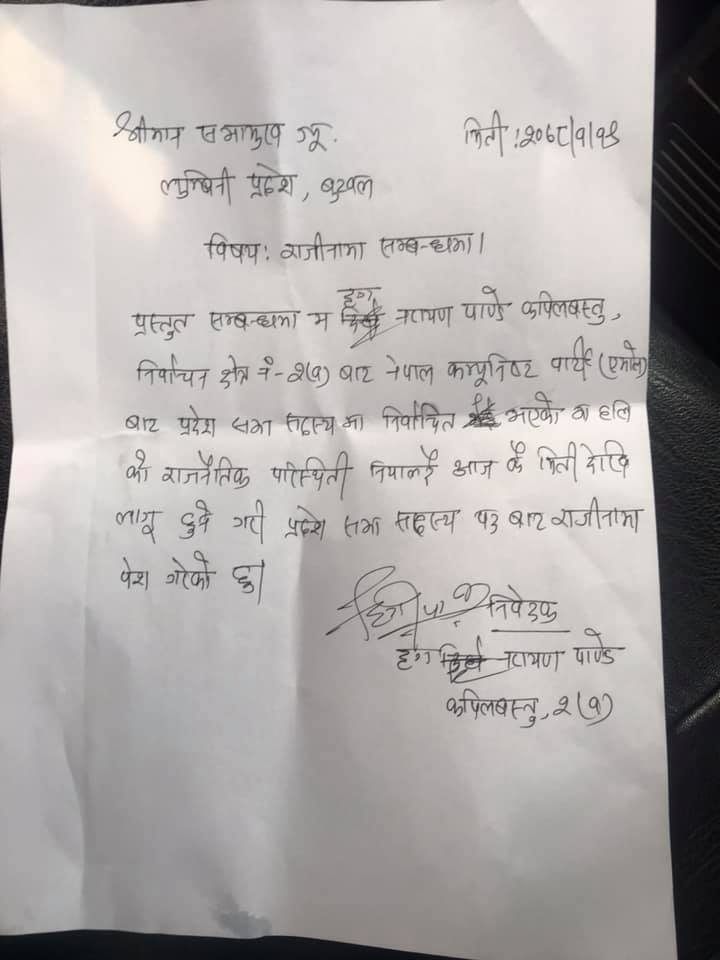 श्रीमान सभामुख ज्यू. मिती:२०७८/१/१९
लुम्बिनी प्रदेश, बुटवल
विषय: राजीनामा सम्बन्धमा।
प्रस्तुत सम्बन्धमा म दृग नारायण पाण्डे कपिलबस्तु,
निर्वाचन क्षेत्र नं-२(१) बाट नेपाल कम्युनिष्ट पार्टी (एमाले)
बाट प्रदेश सभा सदस्य मा निर्वाचित भएको मा हाल
को राजनैतिक परिस्थिती नियालदै आज कै मिती देखि
लागू हुने गरी प्रदेश सभा सदस्य पद बाट राजीनामा
पेश गरेको छु।
निवेदक
दृग नारायण पाण्डे
कपिलबस्तु, २(१)